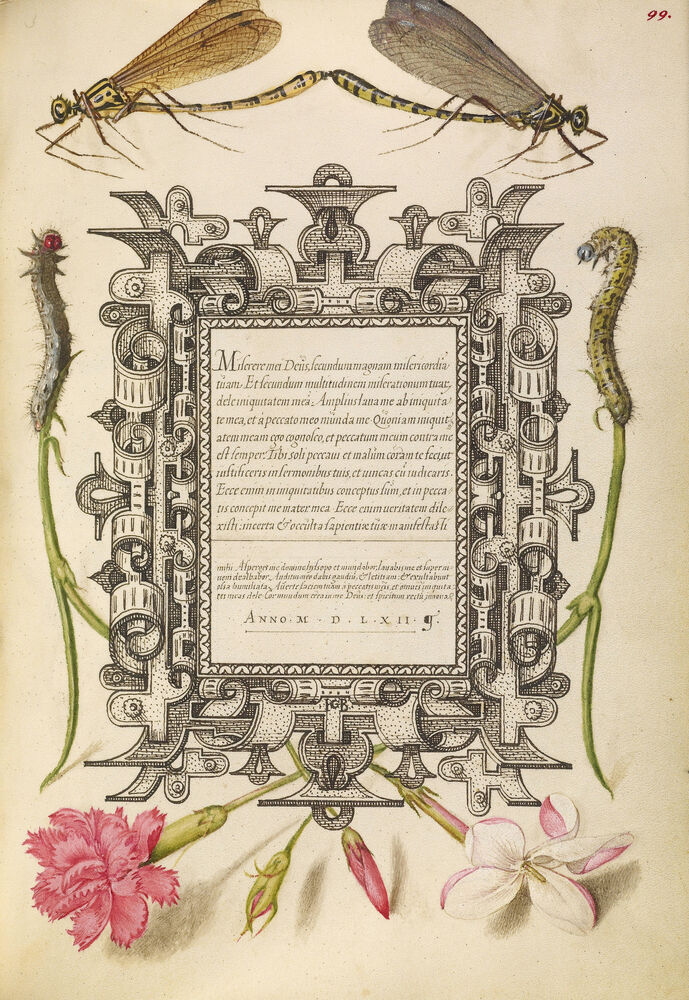 99.
Miserere mei Deus, secundum magnam misericordia
tuam. Et secundum multitudinem miserationum tuar,
dele iniquitatem meā. Amplius lava me ab iniquita
te mea, et à peccato meo mūnda me. Quoniam iniquit
atem meam ego cognosco, et peccatum meum contra me
est semper. Tibi soli peccaui et malūm corām te feci, ut
iustificeris in sermonibus tuis, et uincas cū iudicaris.
Ecce enim in iniquitatibus conceptus sum, et in pecca
tis concepit me mater mea. Ecce enim ueritatem dile
xisti: incerta & occulta sapientiæ tuæ manifestasti
mihi. Asperges me domine hyssopo et mundabor, lauabis me et super ni
uem dealbabor. Auditui meo dabis gaudiū, & letitiam: & exultabunt
ossa humiliata. Auerte faciem tuam a peccatis meis et omnes iniquita
tes meas dele. Cor mundum crea in me Deus: et spiritum rectū innoua
ANNO. M D L X I I
HGB